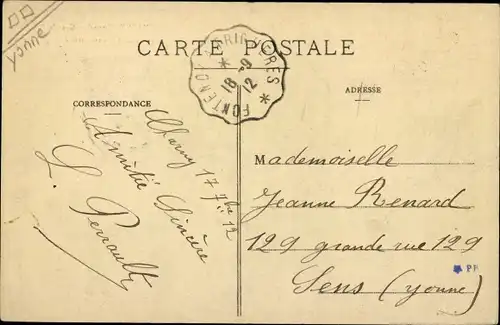 yonne
CARTE POSTALE
FONTENOY
18 -9
12
CORRESPONDANCE
ADRESSE
Charny 17 7bre 12
Amitié Sincère
L. Perrault
Mademoiselle
Jeanne Renard
129 grande rue 129
Sens (yonne)
PF